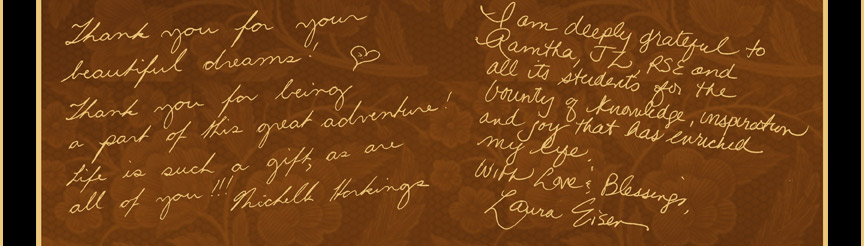 Thank you for your
beautiful dreams! ♡
Thank you for being
a part of this great adventure!
Life is such a gift, as are
all of you!!! Michelle Horkings
I am deeply grateful to
Ramtha, JZ, RSE and
all its students for the
bounty of knowledge, inspiration
and joy that has enriched
my life.
With Love & Blessings,
Laura Eisen